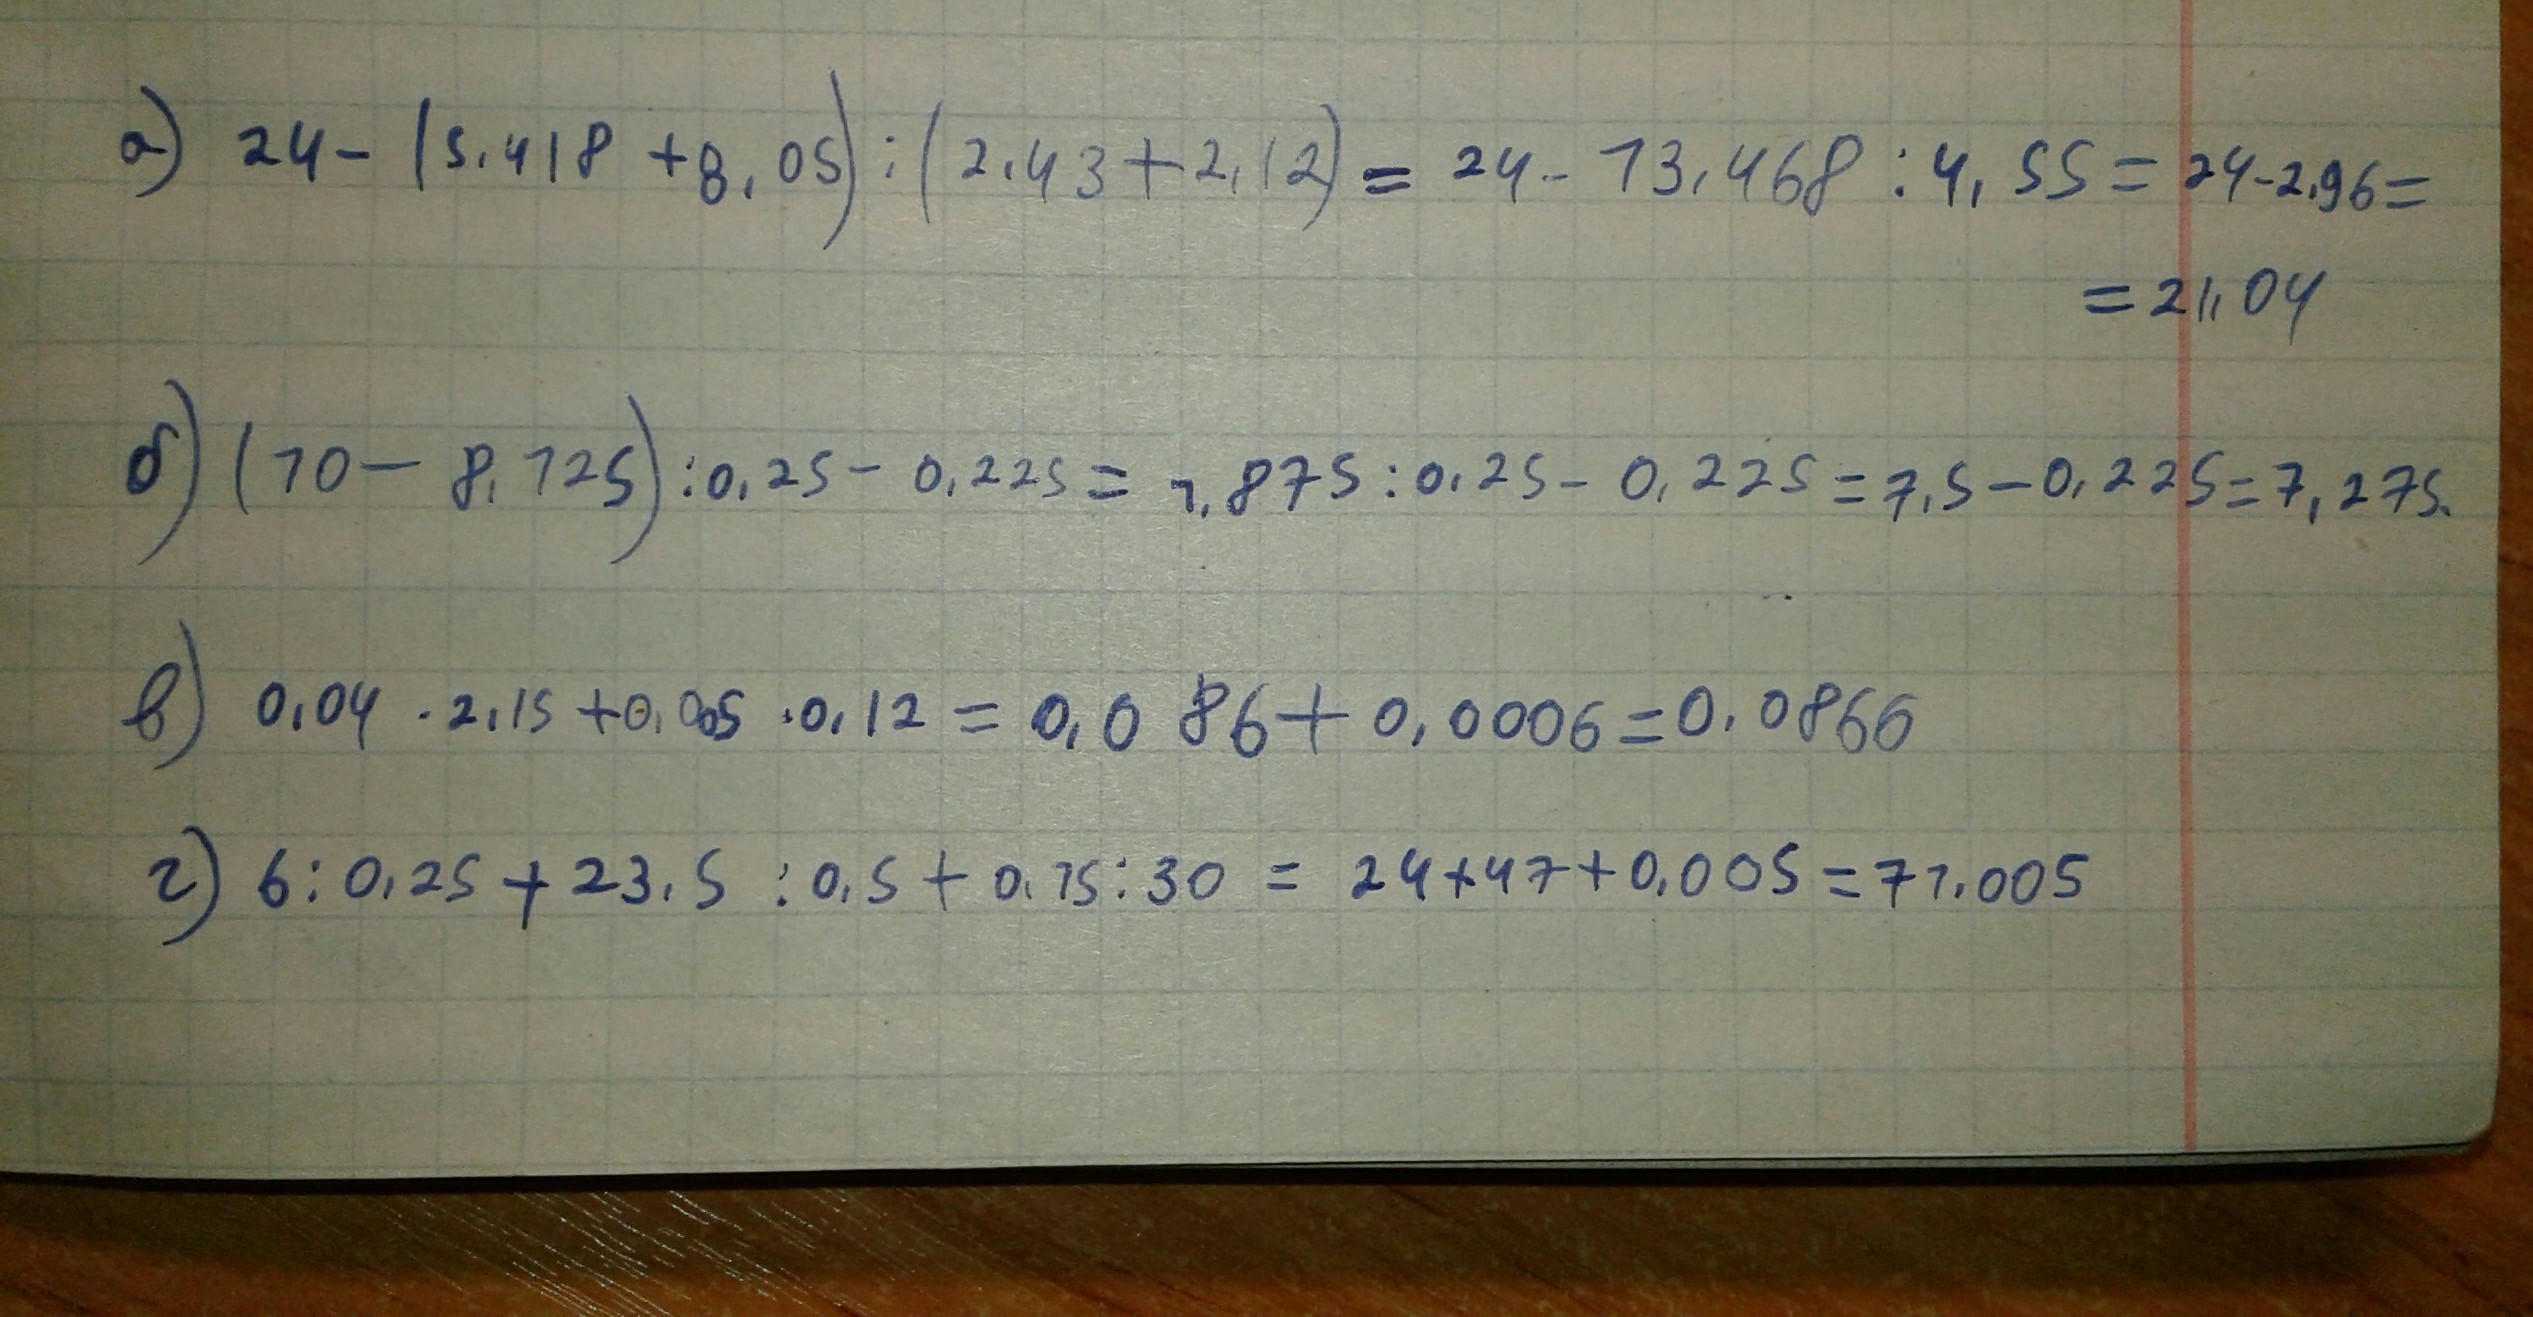 а) 24 - (5,418 + 8,05) : (2,43 + 2,12) = 24 - 13,468 : 4,55 = 24 - 2,96 =
= 21,04
б) (10 - 8,125) : 0,25 - 0,225 = 1,875 : 0,25 - 0,225 = 7,5 - 0,225 = 7,275.
в) 0,04 · 2,15 + 0,005 · 0,12 = 0,086 + 0,0006 = 0,0866
г) 6 : 0,25 + 23,5 : 0,5 + 0,15 : 30 = 24 + 47 + 0,005 = 71,005